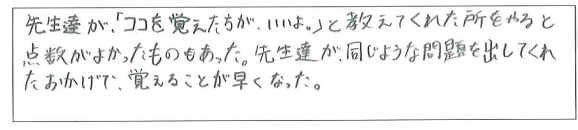 先生達が、「ココを覚えたらが、いいよ。」と教えてくれた所をやると
点数がよかったものもあった。先生達が、同じような問題を出してくれ
たおかげで、覚えることが早くなった。